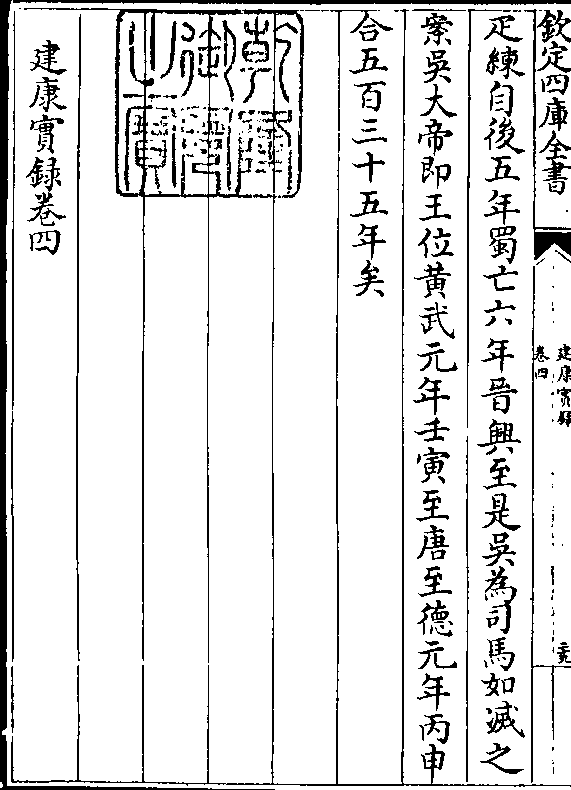 欽定四庫全書
建康實録
卷四
疋練自後五年蜀亡六年晉興至是吳為司馬如滅之
案吳大帝即王位黃武元年壬寅至唐至德元年丙申
合五百三十五年矣
乾隆御覽之寶
建康實録卷四